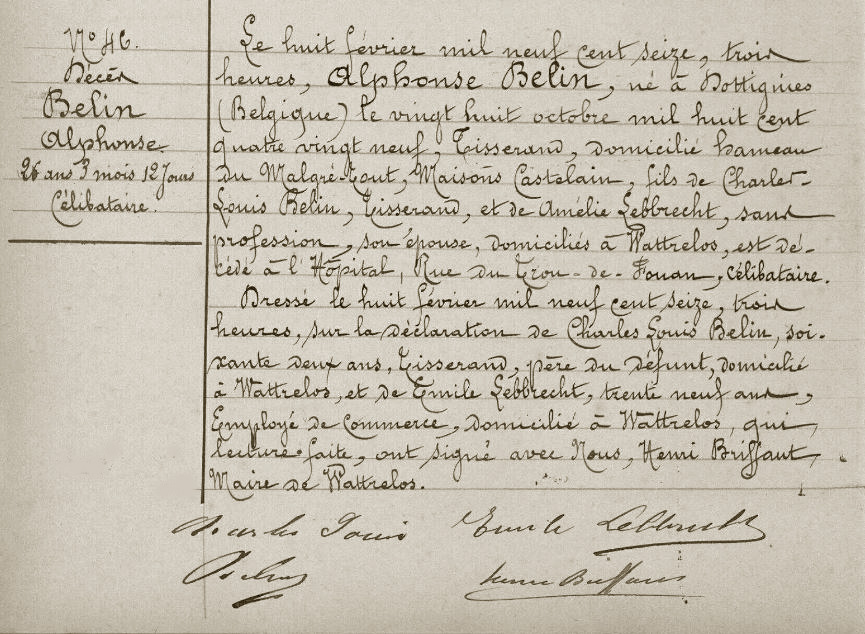 Nº 46.
Décès
Belin
Alphonse.
26 ans 3 mois 12 Jours
Célibataire.
Le huit février mil neuf cent seize, trois
heures, Alphonse Belin, né à Dottignies
(Belgique) le vingt huit octobre mil huit cent
quatre vingt neuf, Tisserand, domicilié hameau
du Malgré-Tout, Maisons Castelain, fils de Charles-
Louis Belin, Tisserand, et de Amélie Lebbrecht, sans
profession, son épouse, domiciliés à Wattrelos, est dé-
cédé à l'Hôpital, Rue du Trou-de-Fouan, célibataire.
Dressé le huit février mil neuf cent seize, trois
heures, sur la déclaration de Charles Louis Belin, soi-
xante deux ans, Tisserand, père du défunt, domicilié
à Wattrelos, et de Emile Lebbrecht, trente neuf ans,
Employé de Commerce, domicilié à Wattrelos, qui,
lecture faite, ont signé avec Nous, Henri Briffaut,
Maire de Wattrelos.
Charles Louis Emile Lebbrecht
Belin Henri Briffaut